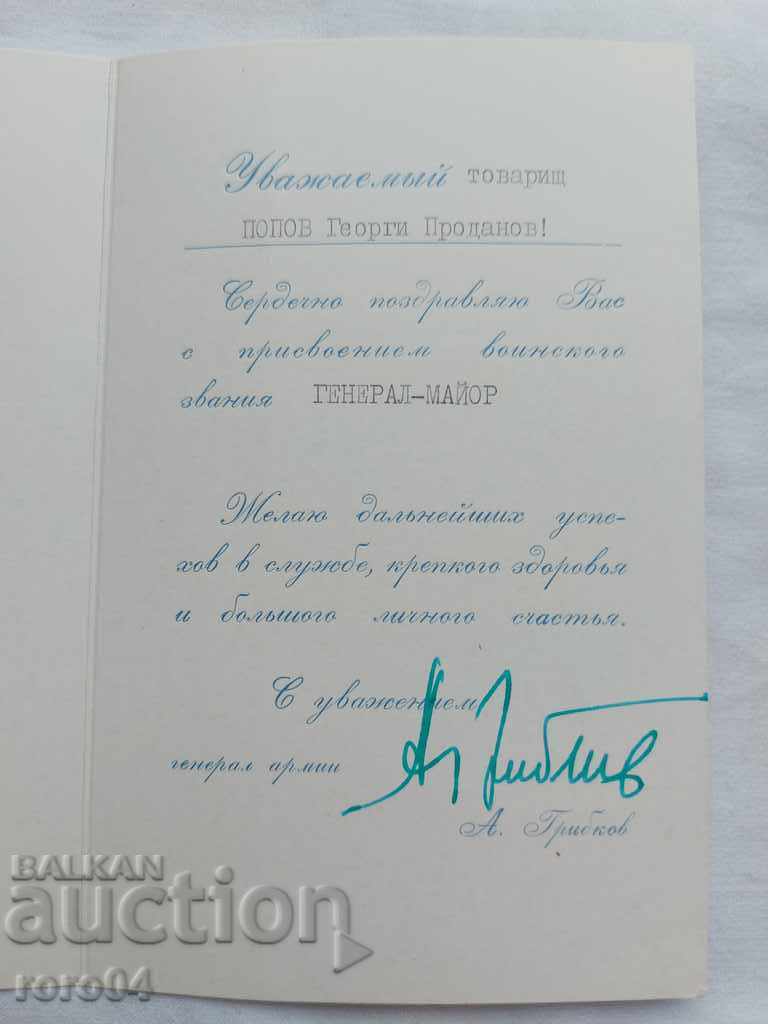 Уважаемый товарищ
ПОПОВ Георги Проданов!
Сердечно поздравляю Вас
с присвоением воинского
звания ГЕНЕРАЛ-МАЙОР
Желаю дальнейших успе-
хов в службе, крепкого здоровья
и большого личного счастья.
С уважением
генерал армии
А. Грибков
BALKAN
auction
roro04